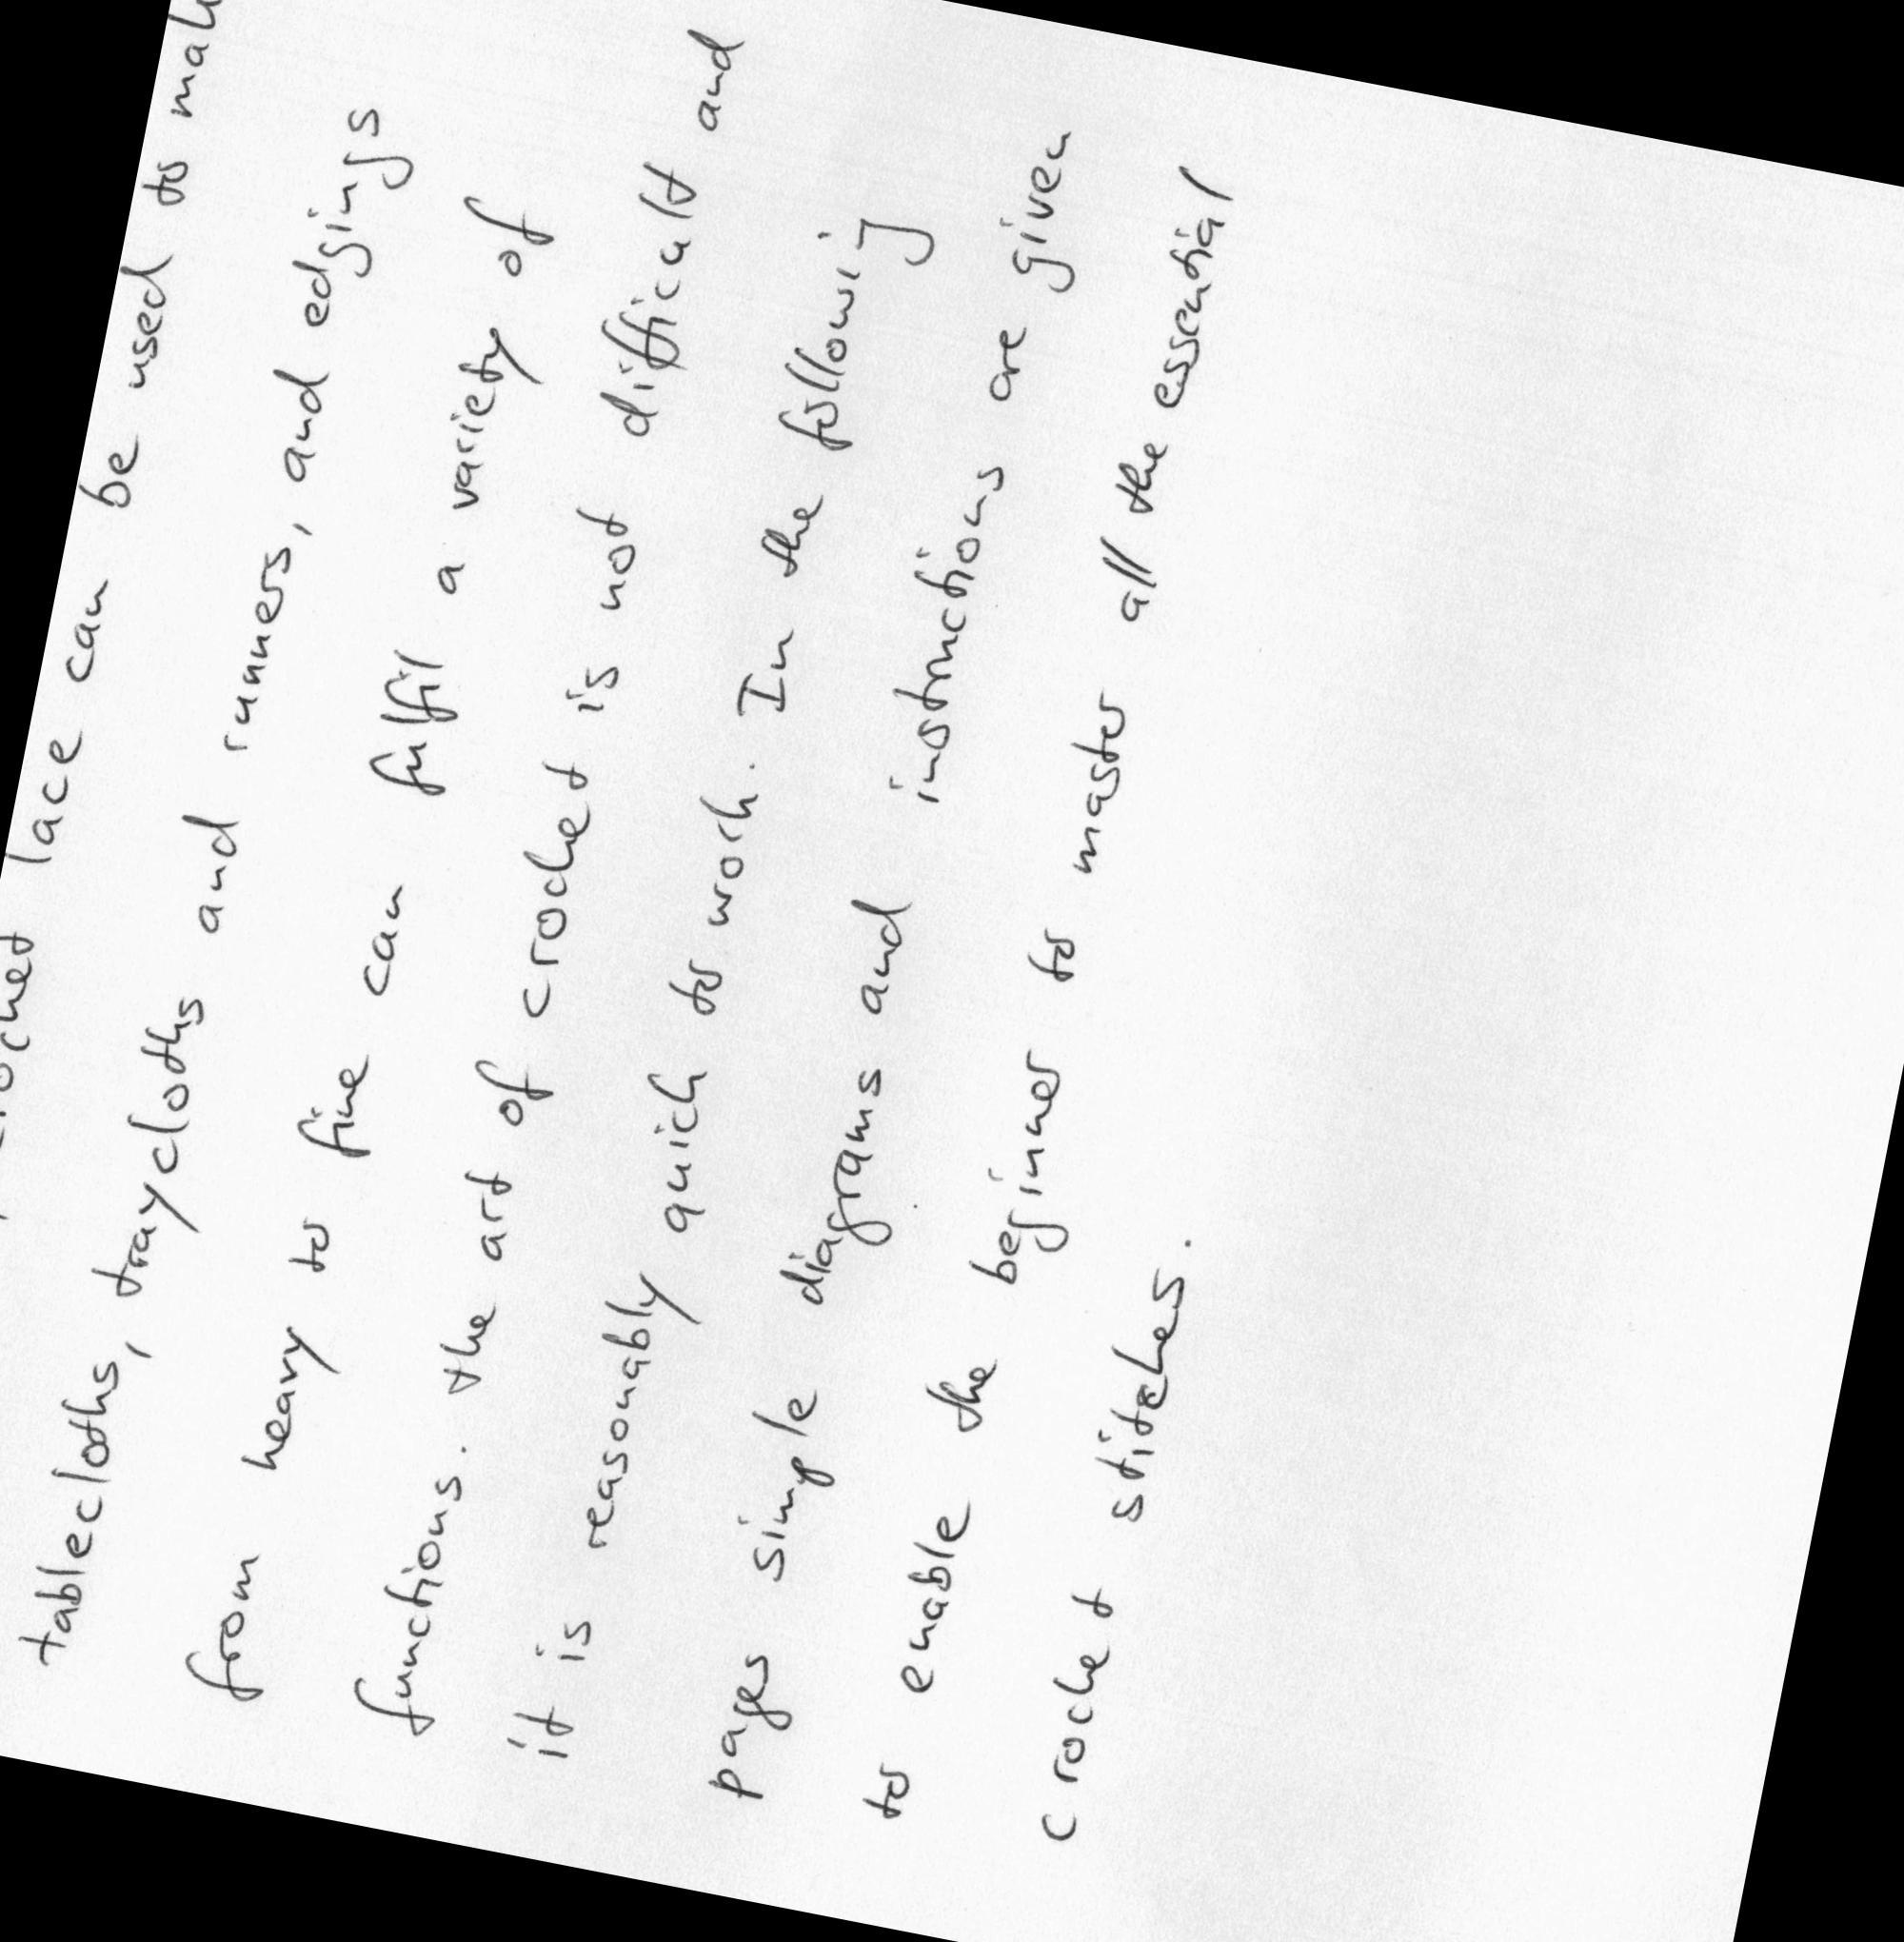 lace can be used to
tablecloths, traycloths and runners, and edgings
from heavy to fine can fulfil a variety of
functions. the art of crochet is not difficult and
it is reasonably quick to work. In the following
pages simple diagrams and instructions are given
to enable the beginner to master all the essential
crochet stitches.